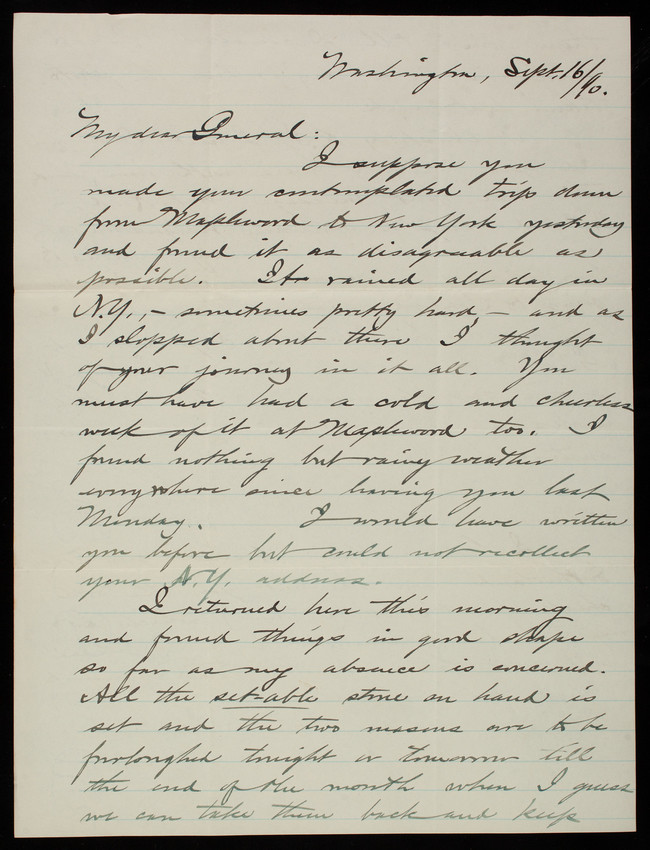 Washington, Sept. 16/90.
My dear General:
I suppose you
made your contemplated trip down
from Maplewood to New York yesterday
and found it as disagreeable as
possible. It rained all day in
N.Y., – sometimes pretty hard, – and as
I slopped about there I thought
of your journey in it all. You
must have had a cold and cheerless
week of it at Maplewood too. I
found nothing but rainy weather
everywhere since leaving you last
Monday. I would have written
you before but could not recollect
your N.Y. address.
I returned here this morning
and found things in good shape
so far as my absence is concerned.
All the set-able stone on hand is
set and the two masons are to be
furloughed tonight or tomorrow till
the end of the month when I guess
we can take them back and keep